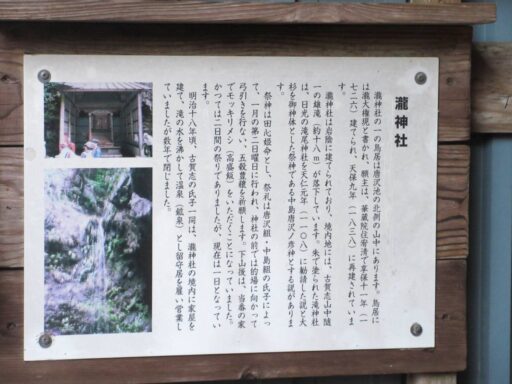 瀧神社
瀧神社の一の鳥居は唐沢池の北側の山中にあります。鳥居に
は瀧大権現と書かれ、願主は、華蔵院住宥清で享保十一年(一
七二六)建てられ、天保九年(一八三八)に再建されていま
す。
瀧神社は岩陰に建てられており、境内地には、古賀志山中随
一の雄滝(約十八m)が落下しています。朱で塗られた滝神社
は、日光の滝尾神社を天仁元年(一一〇八)に勧請した説と大
杉を御神体とした祭神である中島唐沢ノ彦神とする説がありま
す。
祭神は田心姫命とし、祭礼は唐沢組・中島組の氏子によっ
て、一月の第二日曜日に行われ、神社の前では的場に向かって
弓引きを行ない、五穀豊穣を祈願します。下山後は、当番の家
でモッキリメシ(高盛飯)をいただくことになっていました。
かつては二日間の祭りでありましたが、現在は一日となってい
ます。
明治十八年頃、古賀志の氏子一同は、瀧神社の境内に家屋を
建て、滝の水を沸かして温泉(鉱泉)とし留守居を雇い営業し
ていましたが数年で閉じました。